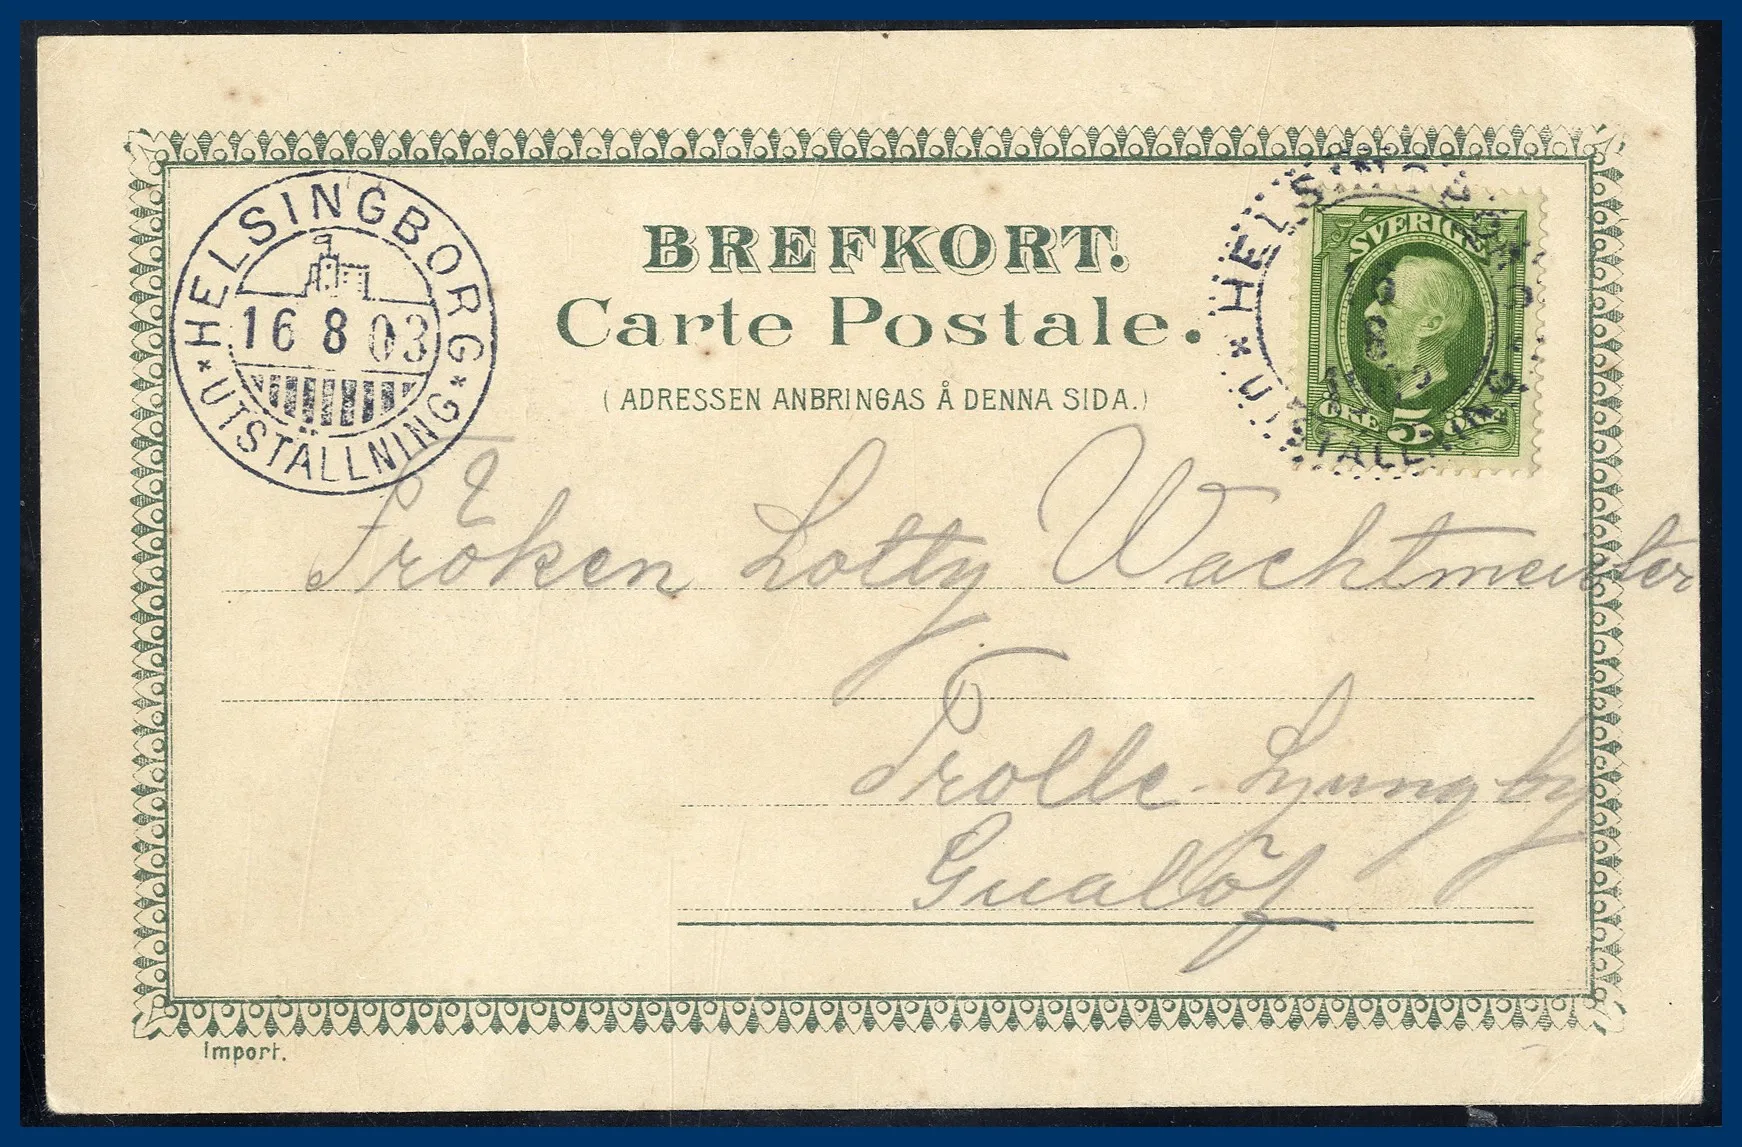 BREFKORT.
Carte Postale.
(ADRESSEN ANBRINGAS Å DENNA SIDA.)
HELSINGBORG
16 8 03
* UTSTÄLLNING *
SVERIGE
ÖRE 5 ÖRE
HELSINGBORG
* UTSTÄLLNING
Fröken Lotty Wachtmeister
Trolle-Ljungby
Gualöf
Import.